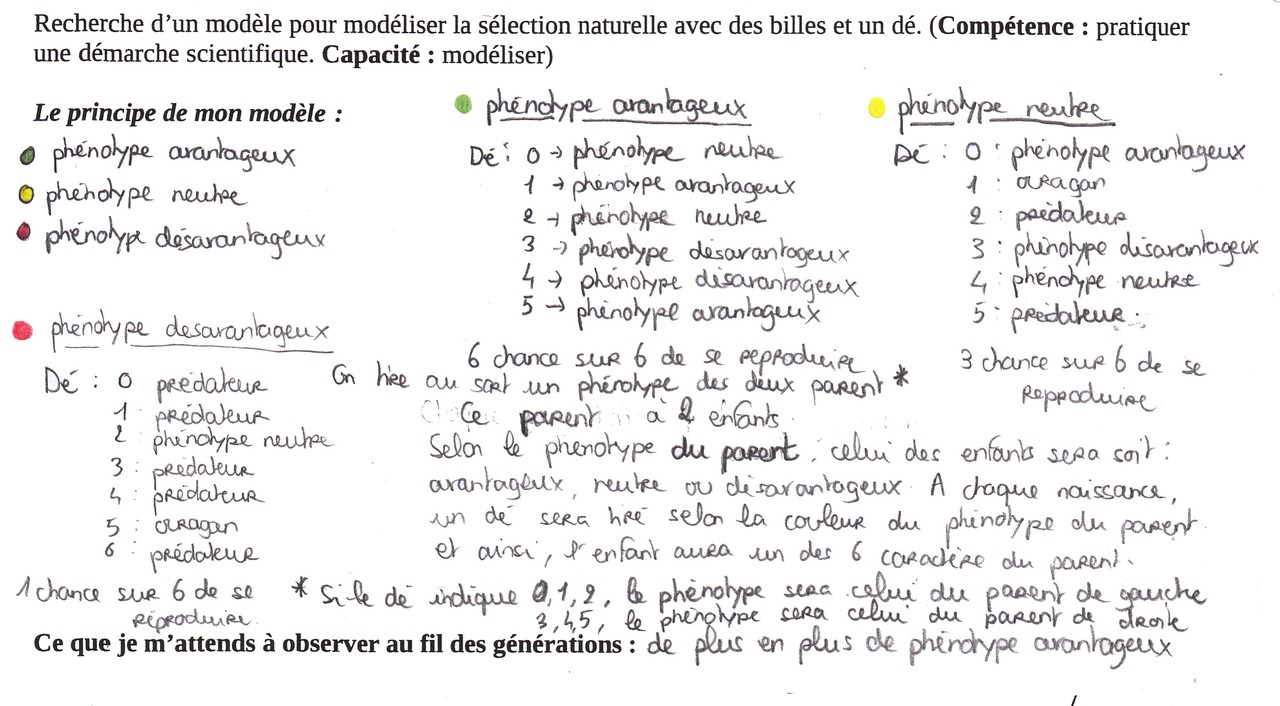 Recherche d'un modèle pour modéliser la sélection naturelle avec des billes et un dé. (Compétence : pratiquer
une démarche scientifique. Capacité : modéliser)
Le principe de mon modèle :
phénotype avantageux
phénotype neutre
phénotype désavantageux
phénotype avantageux
Dé : 0 → phénotype neutre
1 → phénotype avantageux
2 → phénotype neutre
3 → phénotype désavantageux
4 → phénotype désavantageux
5 → phénotype avantageux
6 chance sur 6 de se reproduire
phénotype neutre
Dé : 0 : phénotype avantageux
1 : ouragan
2 : prédateur
3 : phénotype désavantageux
4 : phénotype neutre
5 : prédateur.
3 chance sur 6 de se
reproduire
phénotype desavantageux
Dé : 0 prédateur
1 : prédateur
2 : phénotype neutre
3 : prédateur
4 : prédateur
5 : ouragan
6 : prédateur
1 chance sur 6 de se
réproduire.
On tire au sort un phénotype des deux parent *
Ce parent a 2 enfants.
Selon le phenotype du parent, celui des enfants sera soit :
avantageux, neutre ou désavantageux. A chaque naissance,
un dé sera tiré selon la couleur du phénotype du parent.
et ainsi, l'enfant aura un des 6 caractère du parent.
* Si le dé indique 0,1,2, le phénotype sera celui du parent de gauche
3,4,5, le phénotype sera celui du parent de droite
Ce que je m'attends à observer au fil des générations : de plus en plus de phénotype avantageux